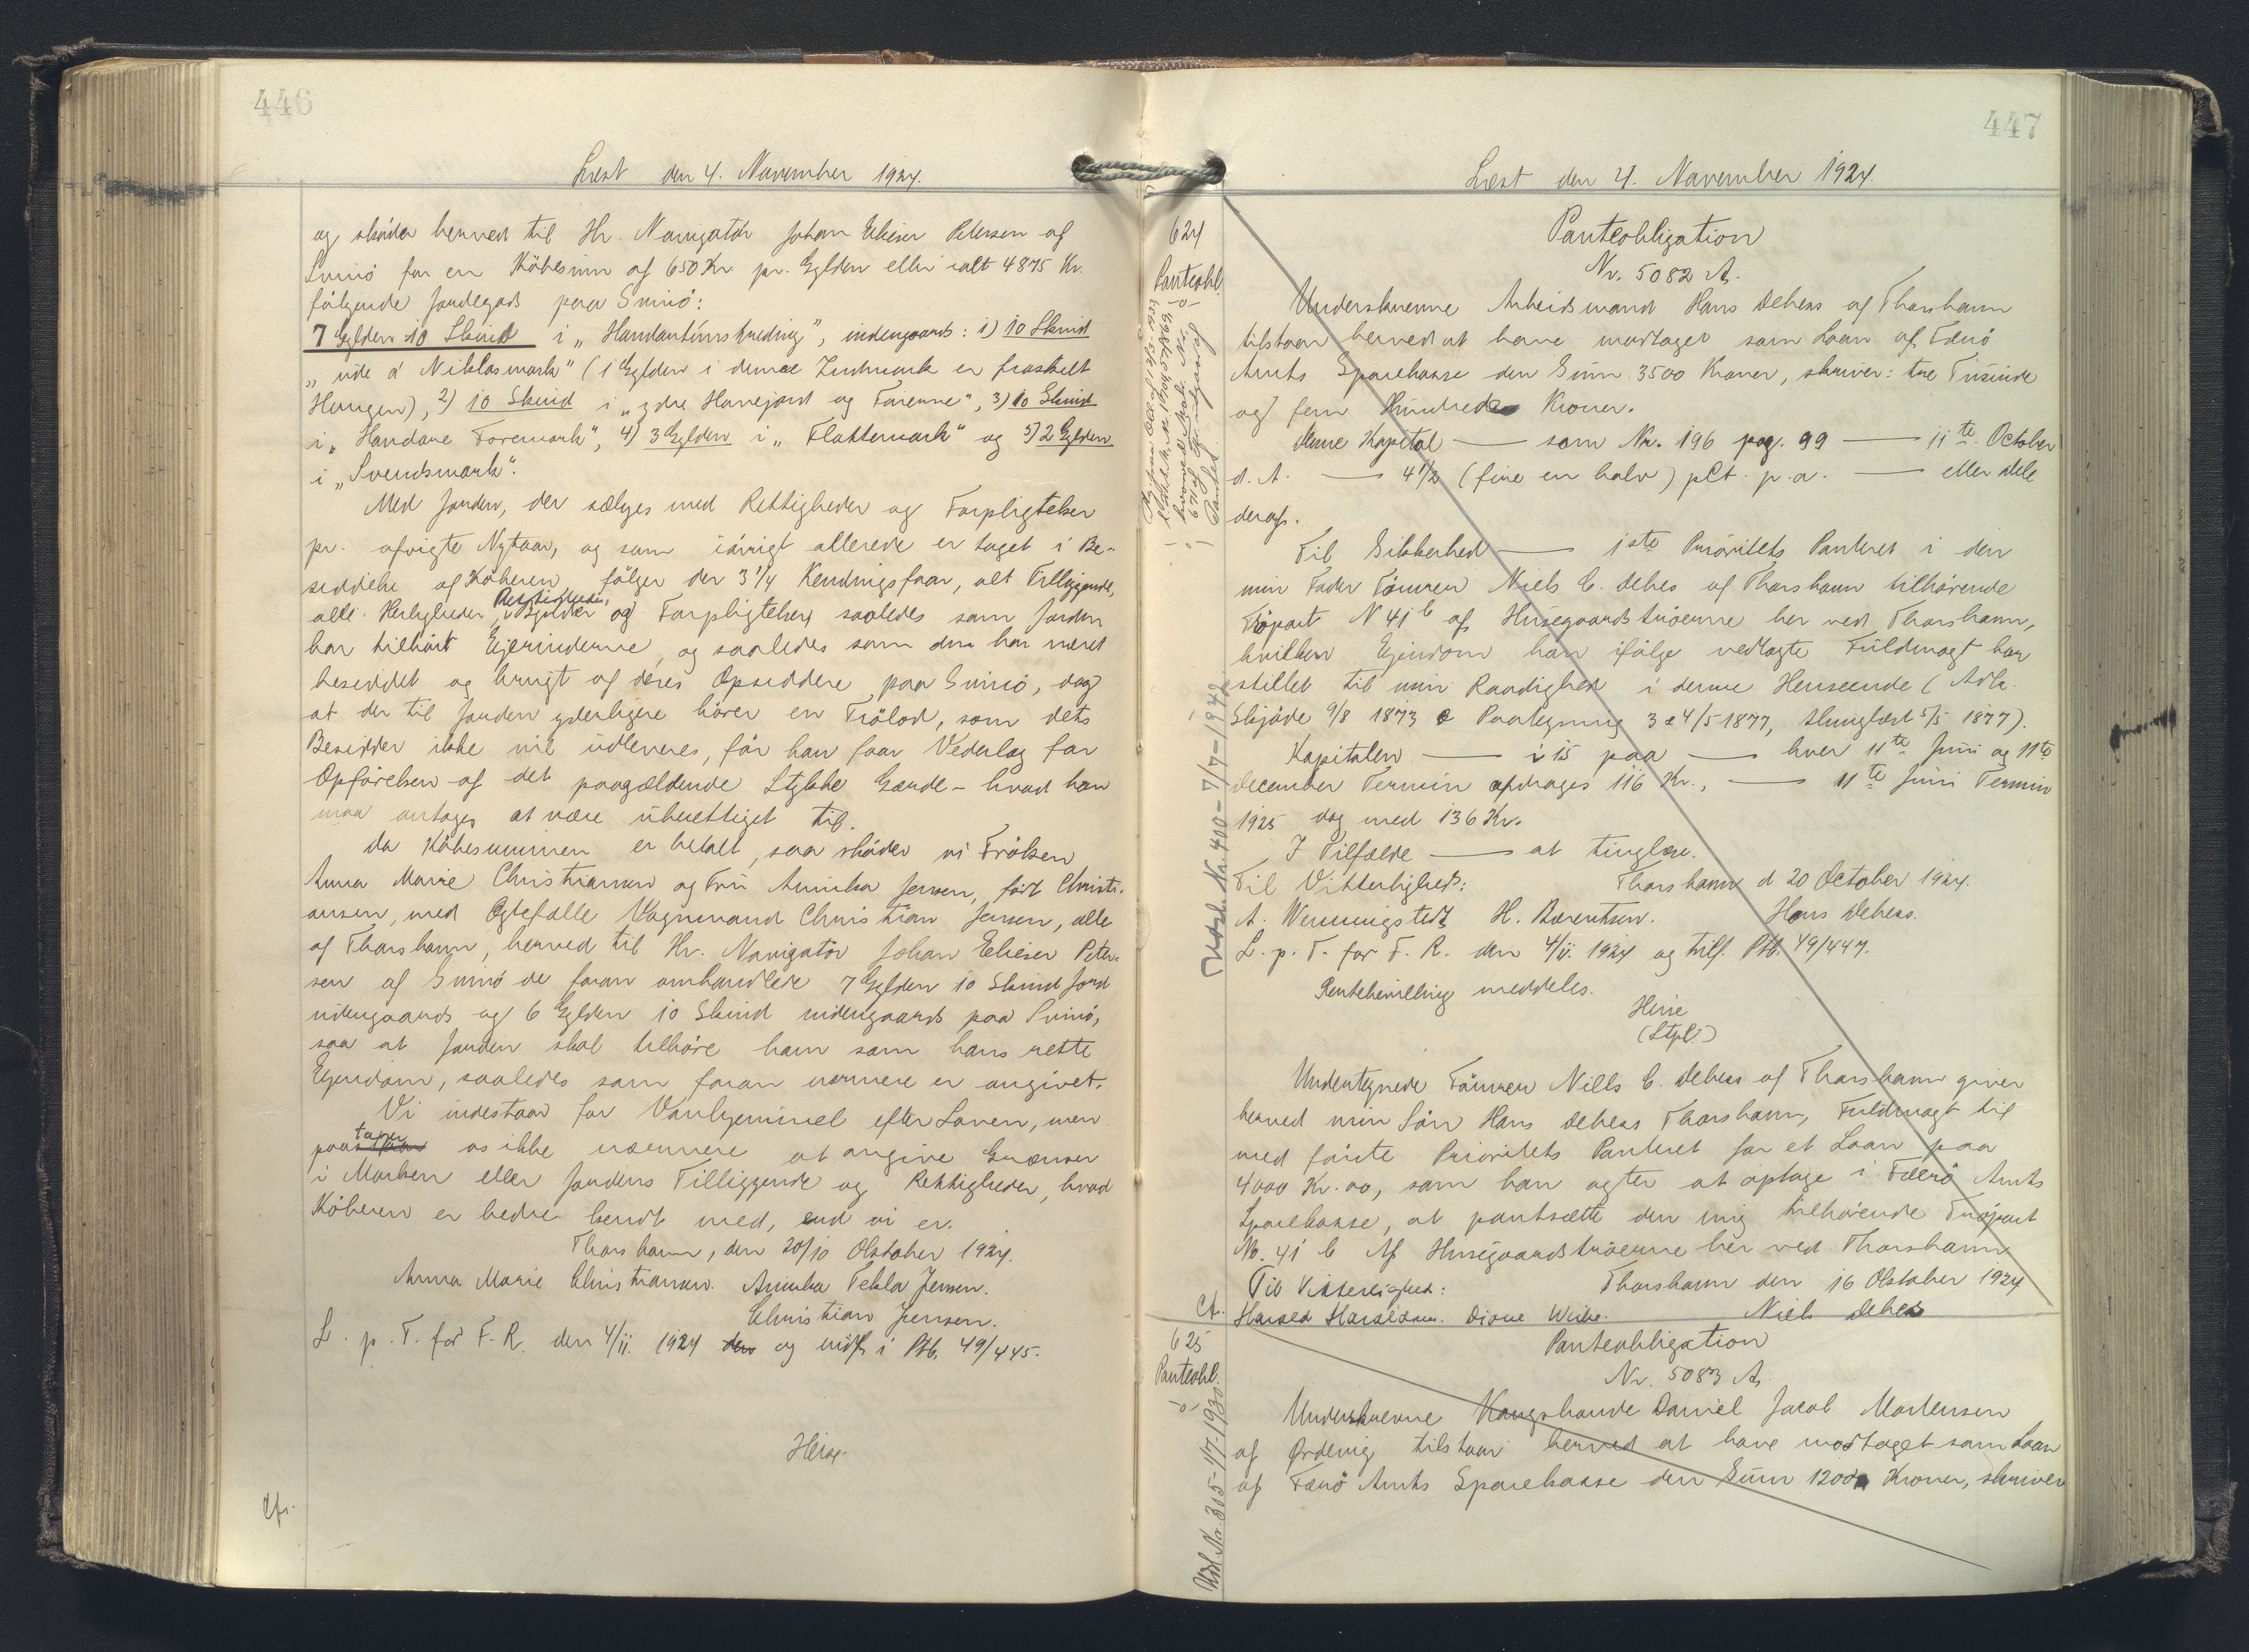 446
Læst den 4. November 1924.
og skøder herved til Hr. Navigatör Johan Elieser Petersen af
Svinö for en Köbesum af 650 Kr pr. Gylden eller ialt 4875 Kr.
følgende Jordegods paa Svinö:
7 Gylden 10 Skind i „ indengaards: 1) 10 Skind
„ ude á Niklasmark" (1 Gylden i denne Indmark er fraskilt
Haugen), 2) 10 Skind i „ydre Havejord og Farerne", 3) 10 Skind
i „Handare Foremark", 4) 3 Gylden i „Flattemark" og 5) 2 Gylden
i „Svendsmark".
Med Jorden, der sælges med Rettigheder og Forpligtelser
pr. afvigte Nytaar, og som iövrigt allerede er taget i Be-
siddelse af Köberen, fölger der 3 1/4 Kendningsfaar, alt Tilliggende,
alle Herligheder, Rettigheder, Byrder og Forpligtelser saaledes som Jorden
har tilhört Ejerinderne, og saaledes som den har været
besiddet og brugt af deres Opsiddere paa Svinö, dog
at der til Jorden yderligere hörer en Trölod, som dets
Besidder ikke vil udlevere, för han faar Vederlag for
Opförelsen af det paagældende Stykke Gærde - hvad han
maa antages at være uberettiget til.
Da Köbesummen er betalt, saa skøder vi Fröken
Anna Marie Christiansen og Fru Annika Jensen, født Christi-
ansen, med Ægtefælle Vognmand Christian Jensen, alle
af Thorshavn, herved til Hr. Navigatör Johan Elieser Peter-
sen af Svinö de foran omhandlede 7 Gylden 10 Skind Jord
udengaards og 6 Gylden 10 Skind indengaards paa Svinö,
saa at Jorden skal tilhöre ham som hans rette
Ejendom, saaledes som foran nærmere er angivet.
Vi indestaar for Vanhjemmel efter Loven, men
paatager os ikke nærmere at angive Grænser
i Marken eller Jordens Tilliggende og Rettigheder, hvad
Köberen er bedre kendt med, end vi er.
Thorshavn, den 20/10 Oktober 1924.
Anna Marie Christiansen. Annika Tekla Jensen.
Christian Jensen.
L. p. T. for F. R. den 4/11. 1924 den og indf. i Ptb. 49/445.
Heise
Cfr.
447
Læst den 4. November 1924.
624
Panteobl.
-o-
Udsl. Nr. 410-7/7-1942
Panteobligation
Nr. 5082 A.
Underskrevne Arbeidsmand Hans Debess af Thorshavn
tilstaar herved at have modtaget som Laan af Færö
Amts Sparekasse den Sum 3500 Kroner, skriver: tre Tusinde
og fem Hundrede Kroner.
Denne Kapital — som Nr. 196 pag. 99 — 11te October
d. A. — 4 1/2 (fire en halv) pCt. p. a. — eller dele
deraf.
Til Sikkerhed — 1ste Prioritets Panteret i den
min Fader Tömrer Niels C. Debes af Thorshavn tilhørende
Tröpart N 41 b af Husegaardströerne her ved Thorshavn,
hvilken Ejendom han ifölge vedlagte Fuldmagt har
stillet til min Raadighed i denne Henseende (Adk.
Skjöde 9/8 1873 & Paategning 3 & 4/5 1877, thinglæst 5/5 1877).
Kapitalen — i 15 paa — hver 11te Juni og 11te
December Termin afdrages 116 Kr., — 11te Juni Termin
1925 dog med 136 Kr.
I Tilfælde — at tinglæse.
Til Vitterlighed: Thorshavn d 20 October 1924.
A. Wenningstedt H. Berentsen. Hans Debess.
L. p. T. for F. R. den 4/11. 1924 og tilf. Ptb. 49/447.
Rentebevilling meddeles.
Heise
(Stpl.)
Undertegnede Tömrer Niels C. Debess af Thorshavn giver
herved min Sön Hans Debess Thorshavn, Fuldmagt til
med förste Prioritets Panteret for et Laan paa
4000 Kr. 00, som han agter at optage i Færö Amts
Sparekasse, at pantsætte den mig tilhörende Tröpart
No. 41 b Af Husegaardströerne her ved Thorshavn
Til Vitterlighed: Thorshavn den 16 Oktober 1924
Harald Haraldsen. Niels Debes
Cf.
625
Panteobl.
-o-
Udsl. Nr. 305-1/7-1930
Panteobligation
Nr. 5083 A.
Underskrevne Kongsbonde Daniel Jacob Mortensen
af Ördevig tilstaar herved at have modtaget som Laan
af Færö Amts Sparekasse den Sum 1200 Kroner, skriver